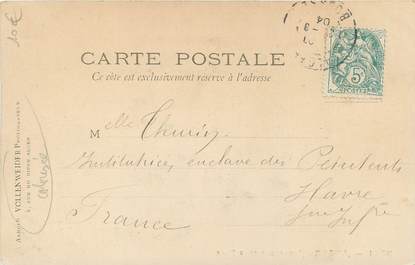 10€
CARTE POSTALE
Ce côté est exclusivement réservé à l'adresse
5c
POSTES
Mlle Thuriz
Institutrice, enclave des Pénitents
Havre
Sne Infre
France
VOLLENWEIDER PHOTOGRAPHE
Algérie